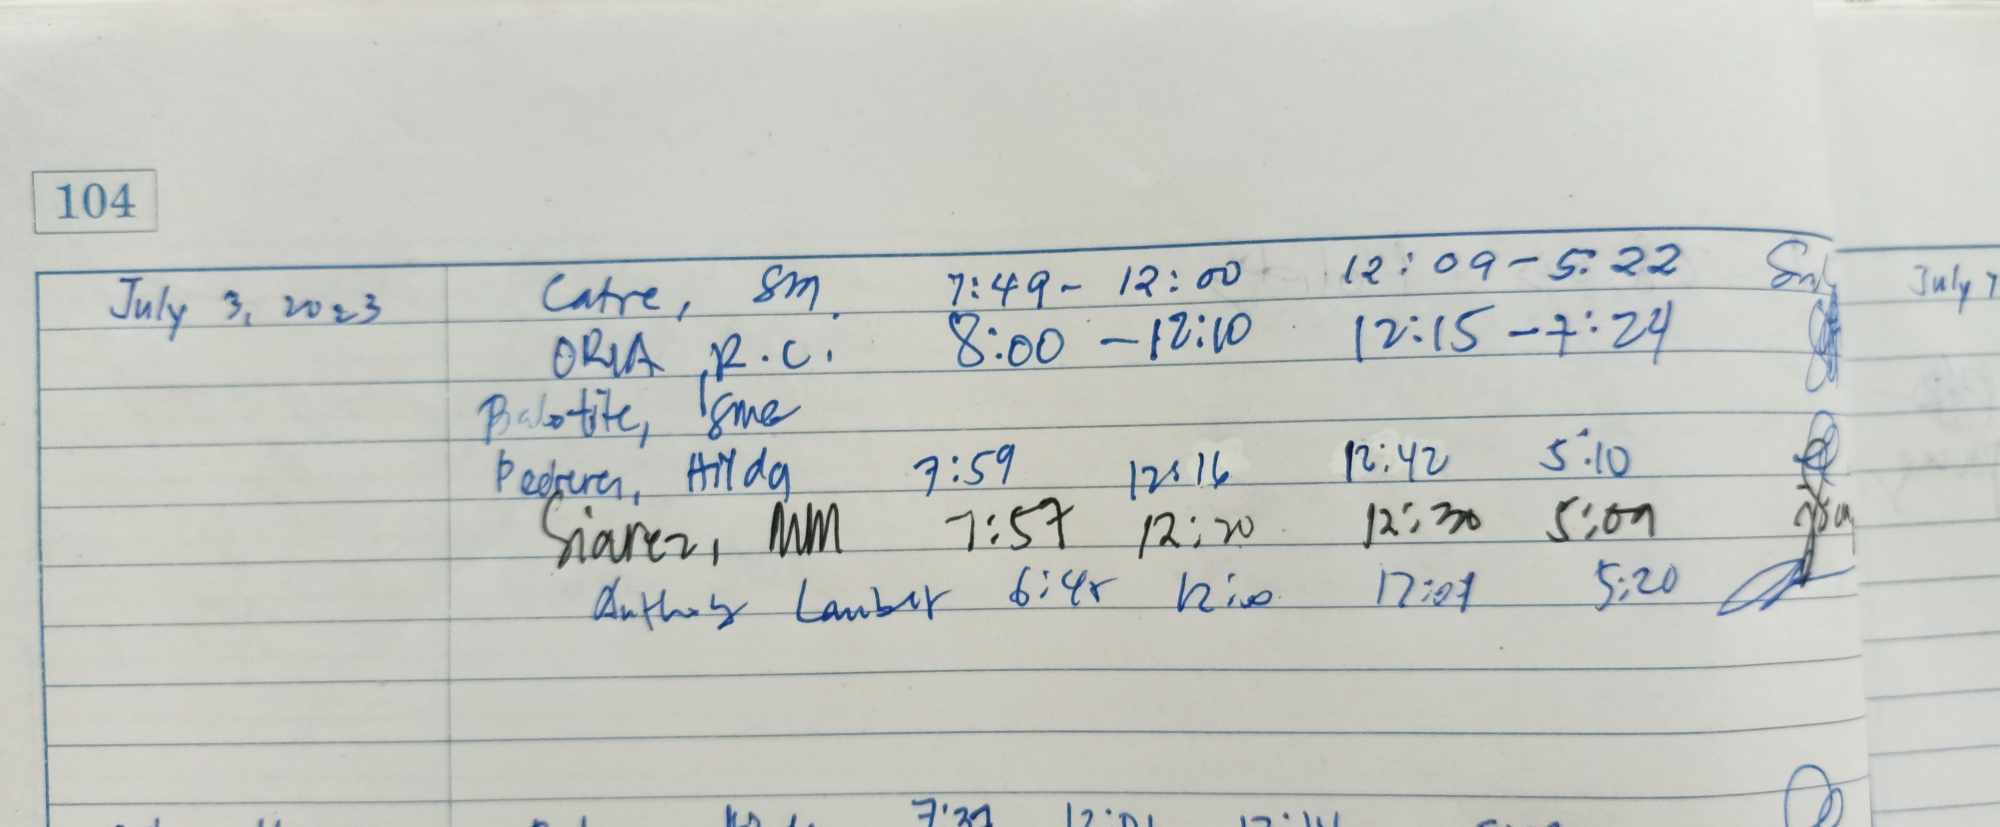 104
July 3, 2023 Catre, SM. 7:49 - 12:00 12:09 - 5:22 July 7
ORIA, R.C. 8:00 - 12:10 12:15 - 7:24
Balotite, SMB
Pedrera, Hilda 7:59 12:16 12:42 5:10
Siarez, MM 7:57 12:20 12:30 5:09
Anthony Lambert 6:45 12:00 12:07 5:20